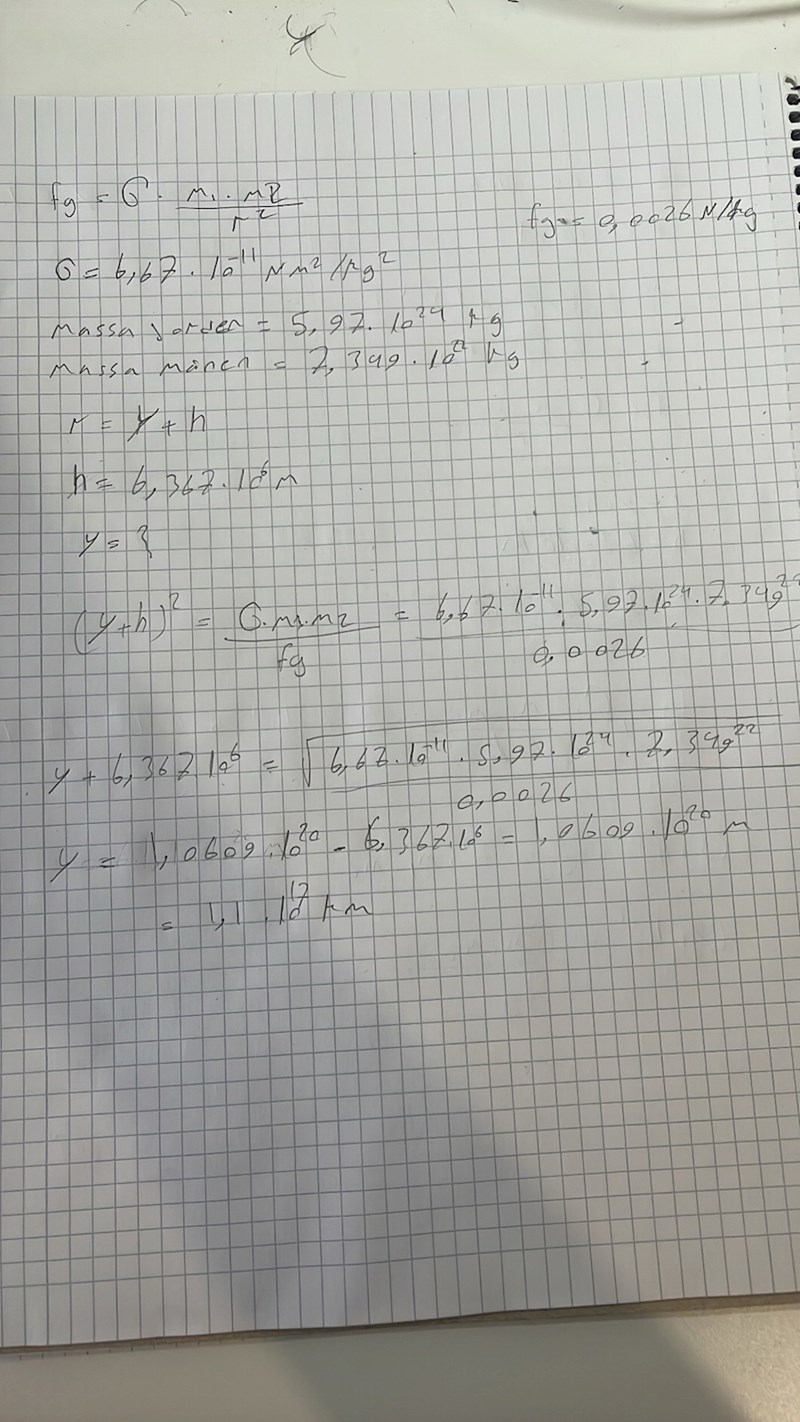 fg = G · m1 · m2 / r²
fg = 0,0026 N/kg
G = 6,67 · 10⁻¹¹ Nm²/kg²
Massa Jorden = 5,97 · 10²⁴ kg
Massa månen = 7,349 · 10²² kg
r = y + h
h = 6,367 · 10⁶ m
y = ?
(y+h)² = G·m1·m2 / fg = 6,67 · 10⁻¹¹ · 5,97 · 10²⁴ · 7,349²² / 0,0026
y + 6,367 10⁶ = √(6,67 · 10⁻¹¹ · 5,97 · 10²⁴ · 7,349²² / 0,0026)
y = 1,0609 · 10²⁰ - 6,367 · 10⁶ = 1,0609 · 10²⁰ m
= 1,1 · 10¹⁷ km